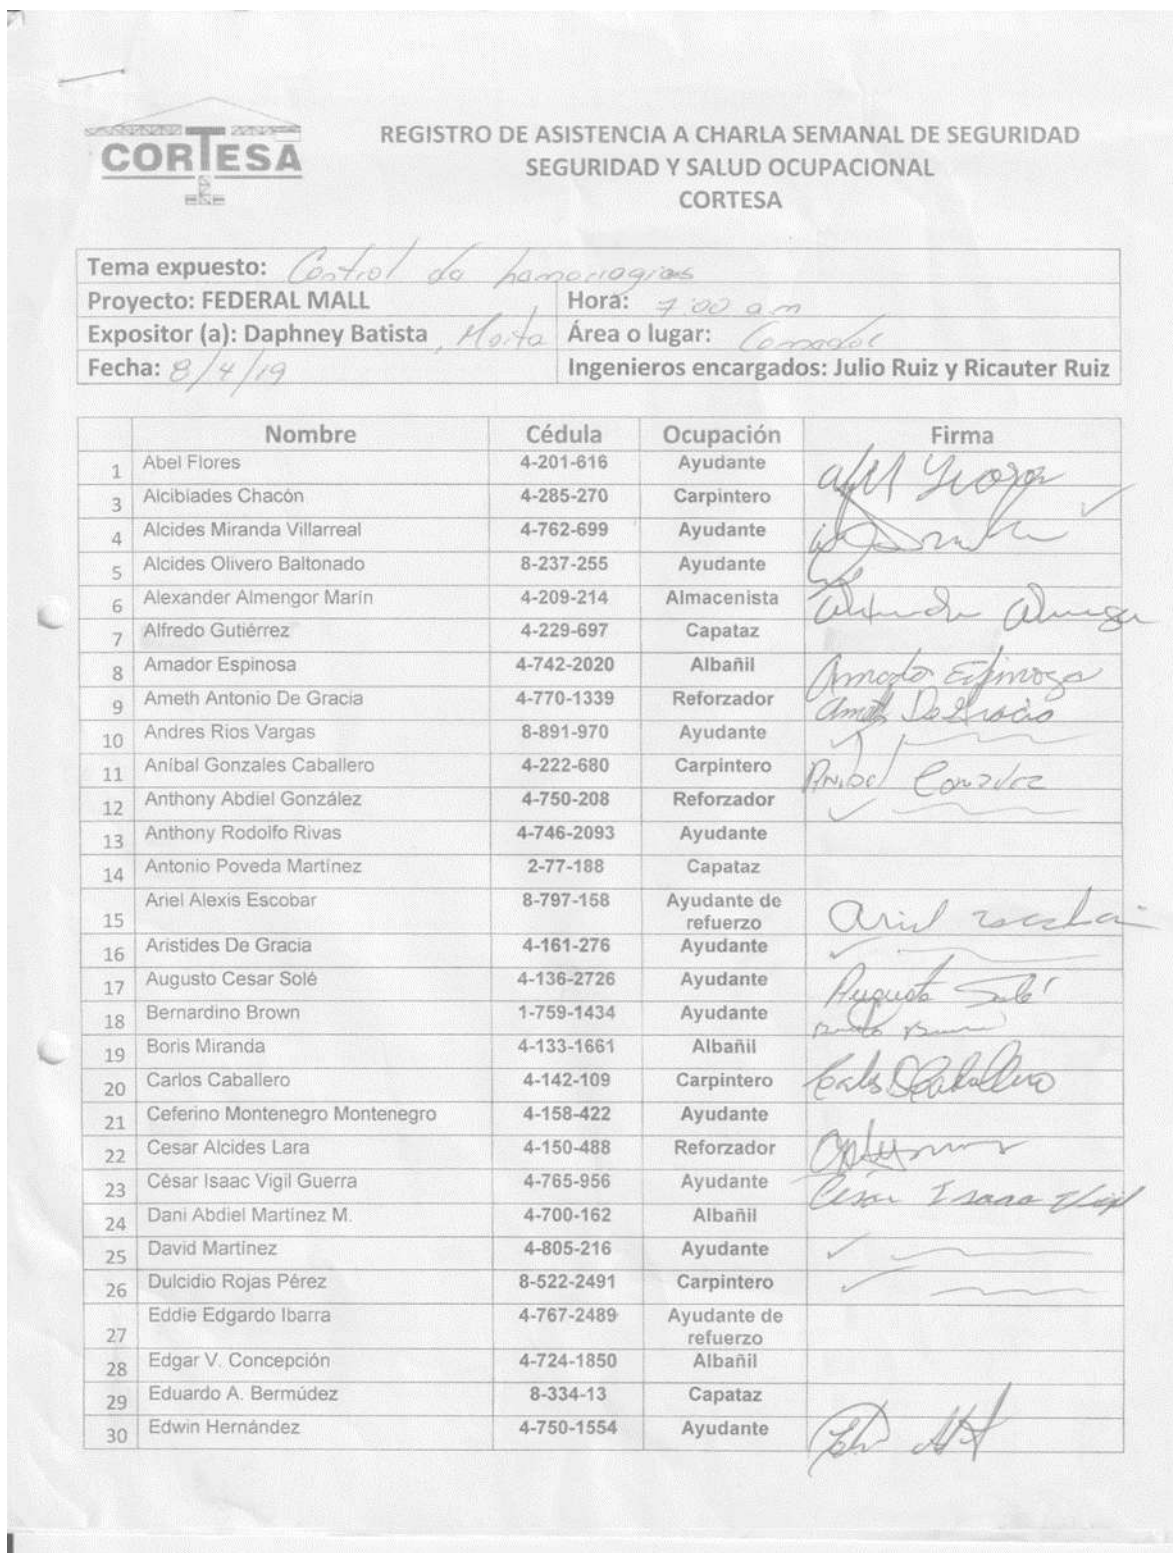 CORTESA
REGISTRO DE ASISTENCIA A CHARLA SEMANAL DE SEGURIDAD
SEGURIDAD Y SALUD OCUPACIONAL
CORTESA
Tema expuesto: Control de hemorragias
Proyecto: FEDERAL MALL Hora: 7:00 a m
Expositor (a): Daphney Batista, Área o lugar: Comedor
Fecha: 8/4/19 Ingenieros encargados: Julio Ruiz y Ricauter Ruiz
Nombre Cédula Ocupación Firma
1 Abel Flores 4-201-616 Ayudante
3 Alcibiades Chacón 4-285-270 Carpintero ✓
4 Alcides Miranda Villarreal 4-762-699 Ayudante
5 Alcides Olivero Baltonado 8-237-255 Ayudante
6 Alexander Almengor Marín 4-209-214 Almacenista
7 Alfredo Gutiérrez 4-229-697 Capataz
8 Amador Espinosa 4-742-2020 Albañil Amador Espinoza
9 Ameth Antonio De Gracia 4-770-1339 Reforzador Ameth De Gracia
10 Andres Rios Vargas 8-891-970 Ayudante ✓
11 Aníbal Gonzales Caballero 4-222-680 Carpintero Anibal Gonzalez
12 Anthony Abdiel González 4-750-208 Reforzador ✓
13 Anthony Rodolfo Rivas 4-746-2093 Ayudante
14 Antonio Poveda Martínez 2-77-188 Capataz
15 Ariel Alexis Escobar 8-797-158 Ayudante de refuerzo Ariel
16 Aristides De Gracia 4-161-276 Ayudante ✓
17 Augusto Cesar Solé 4-136-2726 Ayudante Augusto Solé
18 Bernardino Brown 1-759-1434 Ayudante
19 Boris Miranda 4-133-1661 Albañil
20 Carlos Caballero 4-142-109 Carpintero Carlos Caballero
21 Ceferino Montenegro Montenegro 4-158-422 Ayudante
22 Cesar Alcides Lara 4-150-488 Reforzador
23 César Isaac Vigil Guerra 4-765-956 Ayudante César Isaac Vigil
24 Dani Abdiel Martínez M. 4-700-162 Albañil
25 David Martínez 4-805-216 Ayudante ✓
26 Dulcidio Rojas Pérez 8-522-2491 Carpintero ✓
27 Eddie Edgardo Ibarra 4-767-2489 Ayudante de refuerzo
28 Edgar V. Concepción 4-724-1850 Albañil
29 Eduardo A. Bermúdez 8-334-13 Capataz
30 Edwin Hernández 4-750-1554 Ayudante